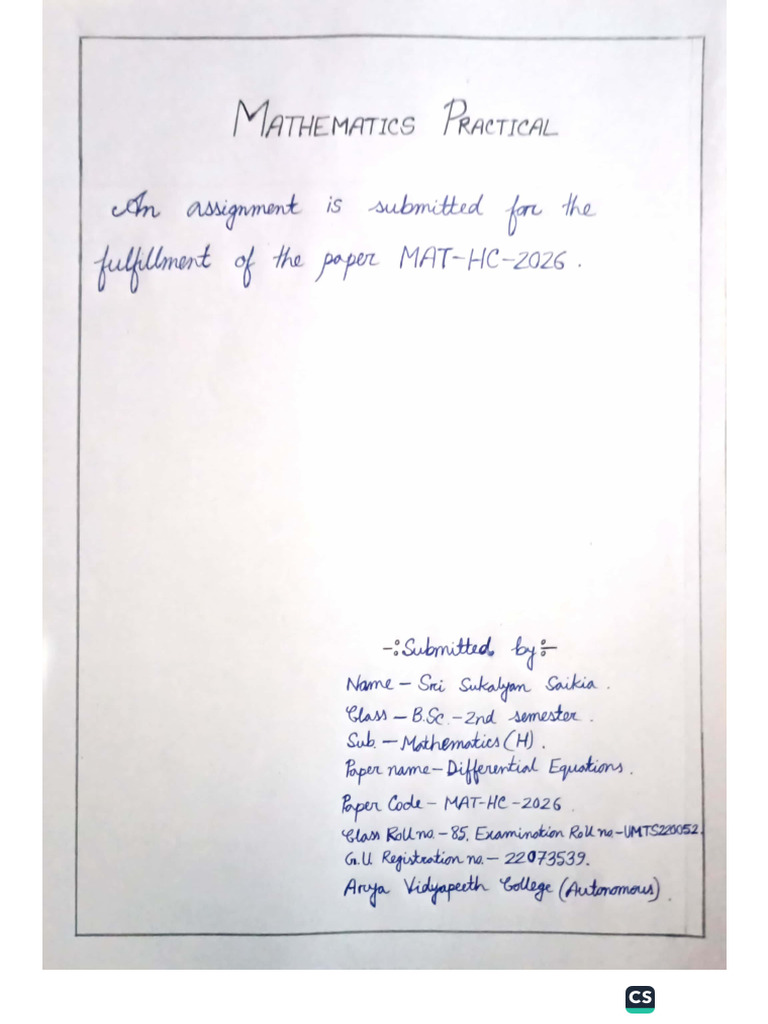 MATHEMATICS PRACTICAL
An assignment is submitted for the
fulfillment of the paper MAT-HC-2026.
-:Submitted by:-
Name - Sri Sukalyan Saikia.
Class - B.Sc. - 2nd semester.
Sub. - Mathematics (H).
Paper name - Differential Equations.
Paper Code - MAT-HC-2026
Class Roll no. - 85, Examination Roll no - UMTS220052.
G.U Registration no. - 22073539.
Arya Vidyapeeth College (Autonomous).
CS